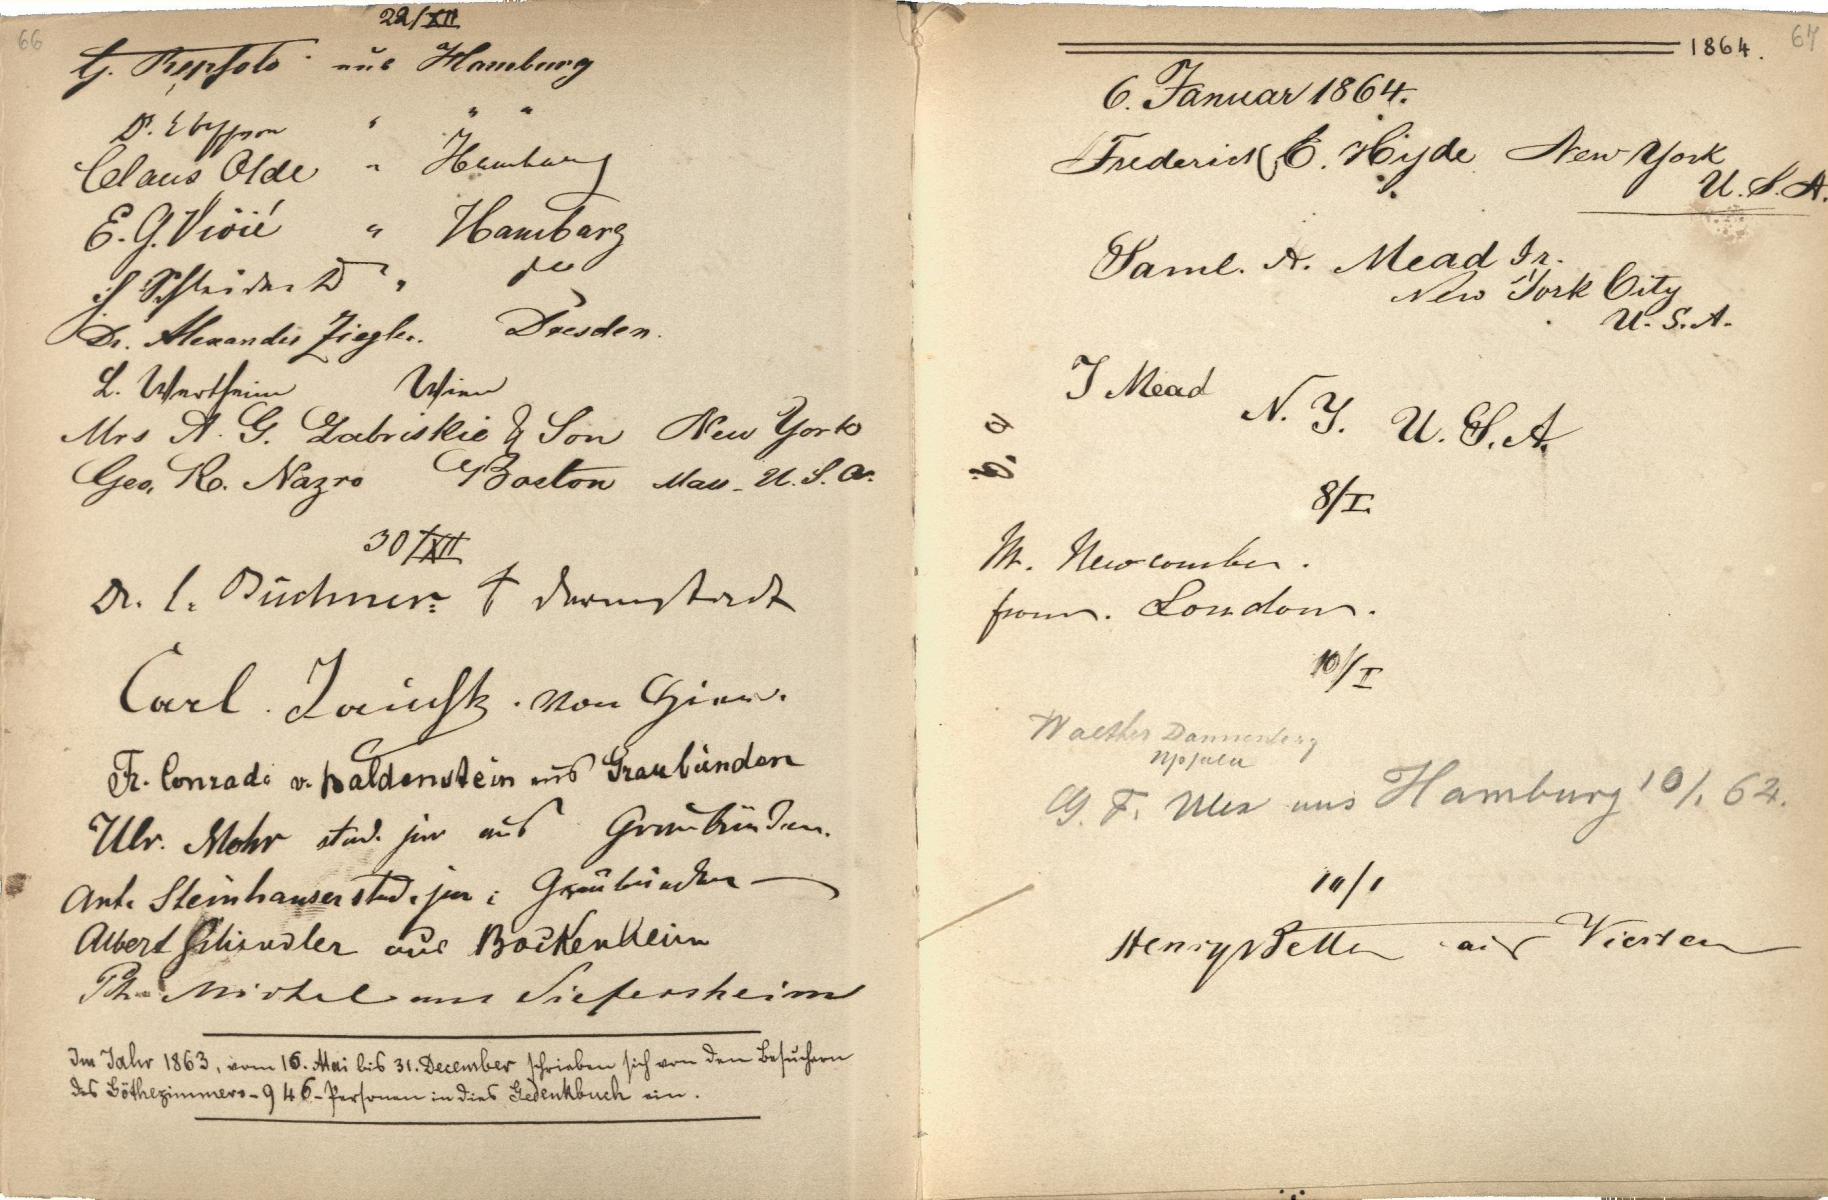 66
22/XII
G. Repsold aus Hamburg
Dr. " " "
Claus Olde " Hamburg
E. G. Vivié " Hamburg
" do
Dr. Alexander Ziegler. Dresden.
L. Wertheim Wien
Mrs A. G. Zabriskie & Son New York
Geo. R. Nazro Boston Mass. U.S.A.
30/XII
Dr. L. Büchner Darmstadt
Carl von
Fr. Conradi v. Baldenstein aus Graubünden
Ulr. Mohr stud. jur aus Graubünden.
Ant. Steinhauser stud. jur: Graubünden
Albert Schindler aus Bockenheim
Ph. Michel aus Siefersheim
Im Jahr 1863, vom 16. Mai bis 31. December schrieben sich von den Besuchern
des Göthezimmers - 946 - Personen in dies Gedenkbuch ein.
1864.
67
6. Januar 1864.
Frederick E. Hyde New York
U.S.A.
Saml. A. Mead Jr.
New York City
U.S.A.
J Mead N.Y. U.S.A.
8/I.
M. Newcomber.
from. London.
10/I
Walther Dannenberg
G. F. Ulex aus Hamburg 10/1 64.
10/1
Henry Better aus Viersen